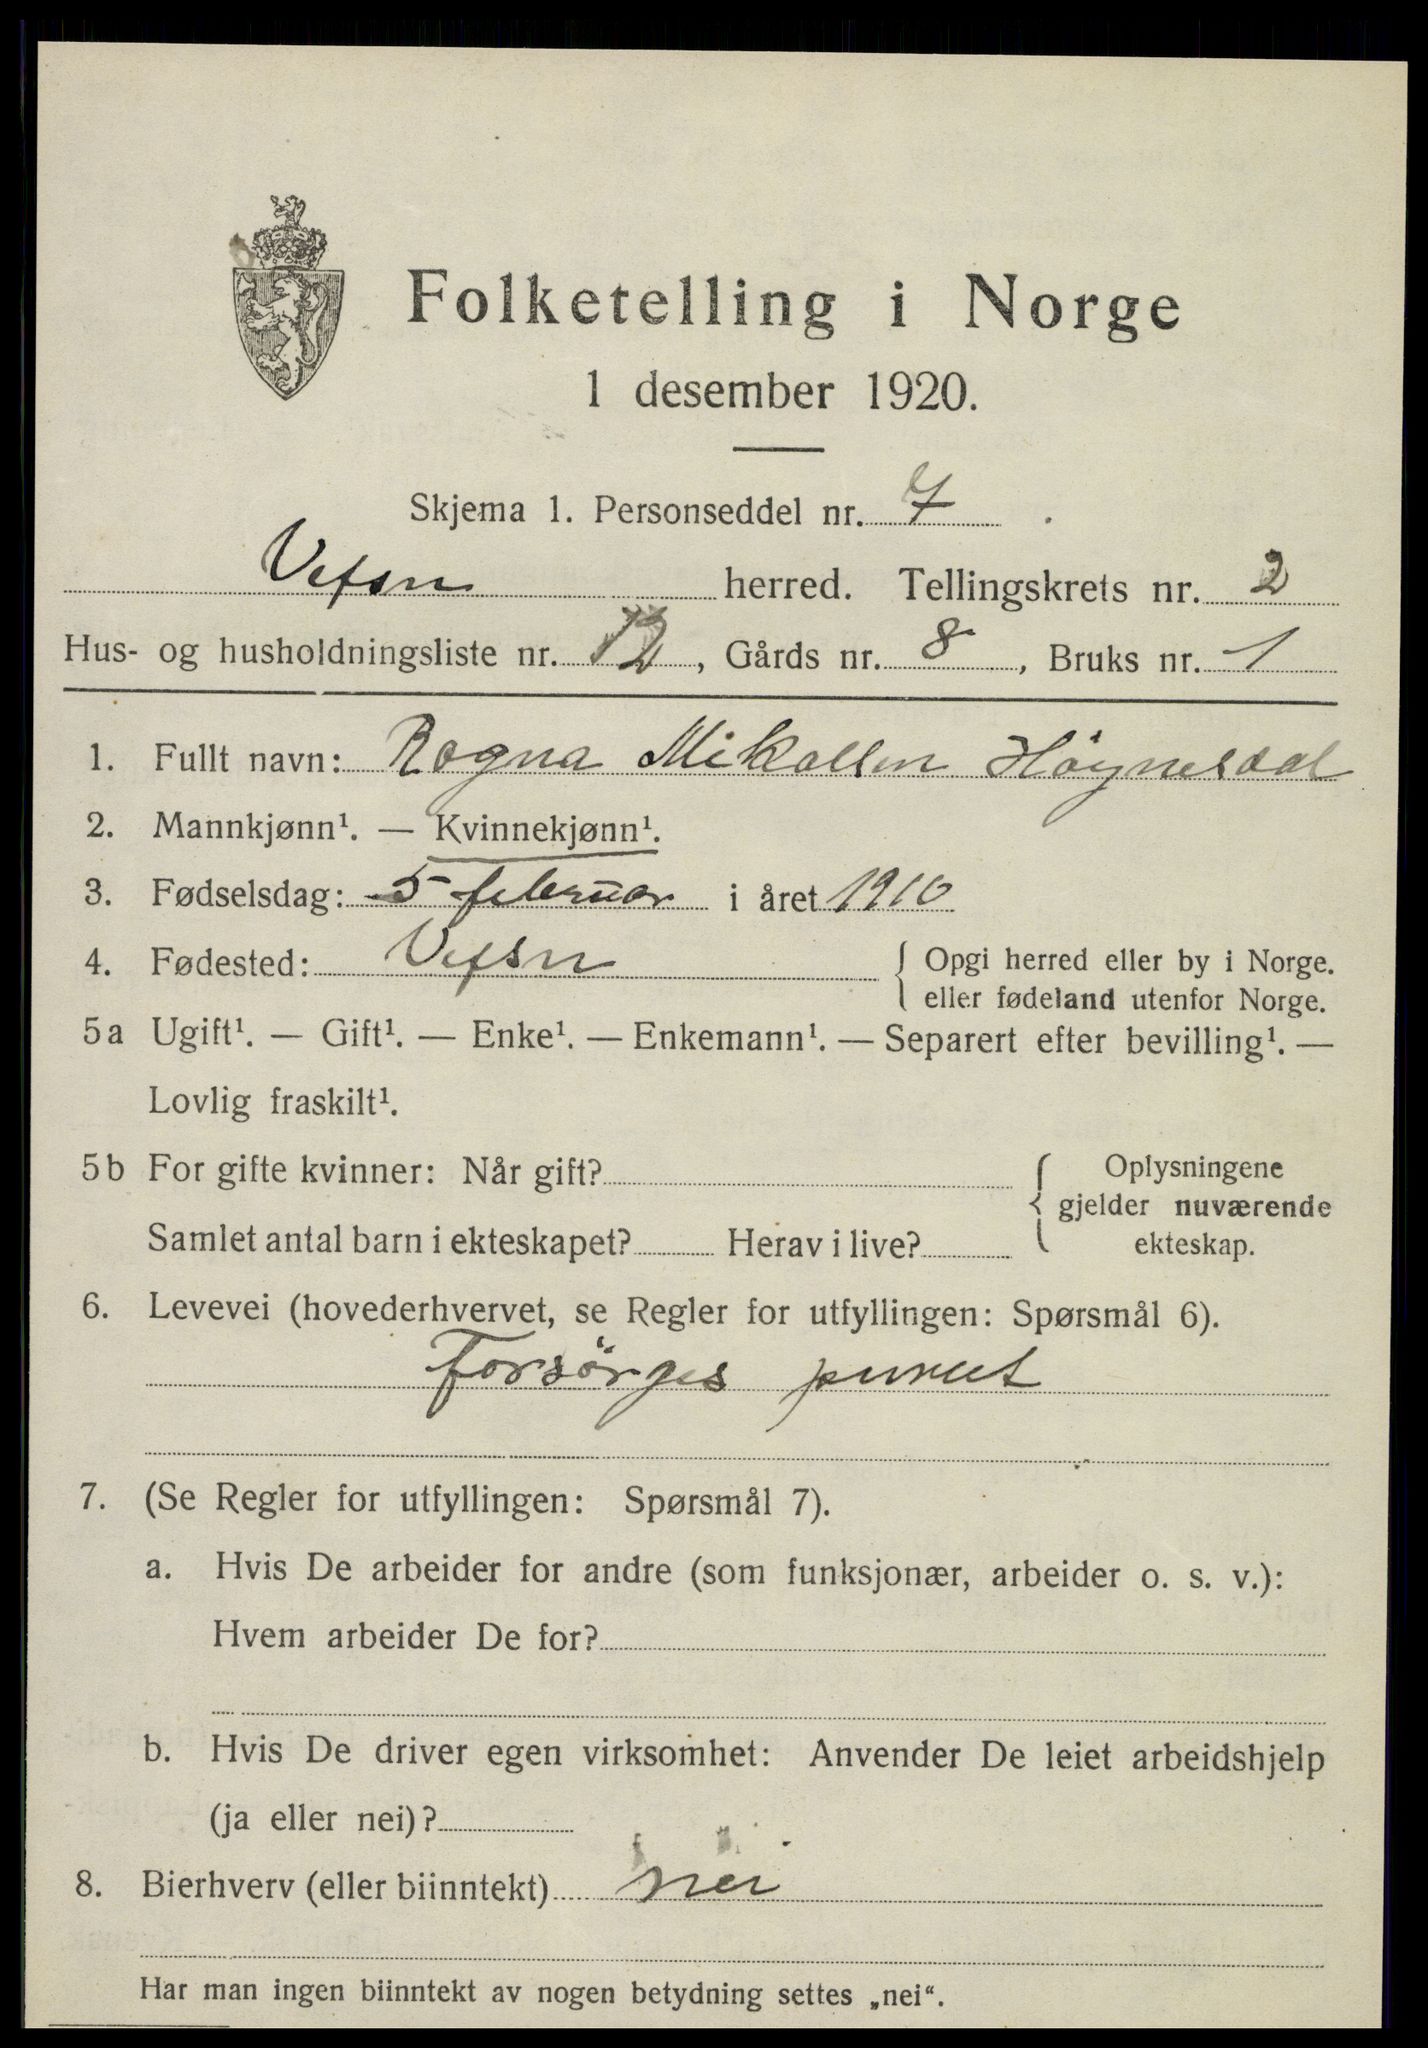 Folketelling i Norge
1 desember 1920.
Skjema 1. Personseddel nr. 7
Vefsn herred. Tellingskrets nr. 2
Hus- og husholdningsliste nr. 12, Gårds nr. 8, Bruks nr. 1
1. Fullt navn: Ragna Mikalsen Høynesdal
2. Mannkjønn¹. — Kvinnekjønn¹.
3. Fødselsdag: 5 februar i året 1910
4. Fødested: Vefsn { Opgi herred eller by i Norge.
eller fødeland utenfor Norge.
5a Ugift¹. — Gift¹. — Enke¹. — Enkemann¹. — Separert efter bevilling¹. —
Lovlig fraskilt¹.
5b For gifte kvinner: Når gift? { Oplysningene
gjelder nuværende
Samlet antal barn i ekteskapet? Herav i live? ekteskap.
6. Levevei (hovederhvervet, se Regler for utfyllingen: Spørsmål 6).
Forsørges
7. (Se Regler for utfyllingen: Spørsmål 7).
a. Hvis De arbeider for andre (som funksjonær, arbeider o. s. v.):
Hvem arbeider De for?
b. Hvis De driver egen virksomhet: Anvender De leiet arbeidshjelp
(ja eller nei)?
8. Bierhverv (eller biinntekt) nei
Har man ingen biinntekt av nogen betydning settes „nei“.